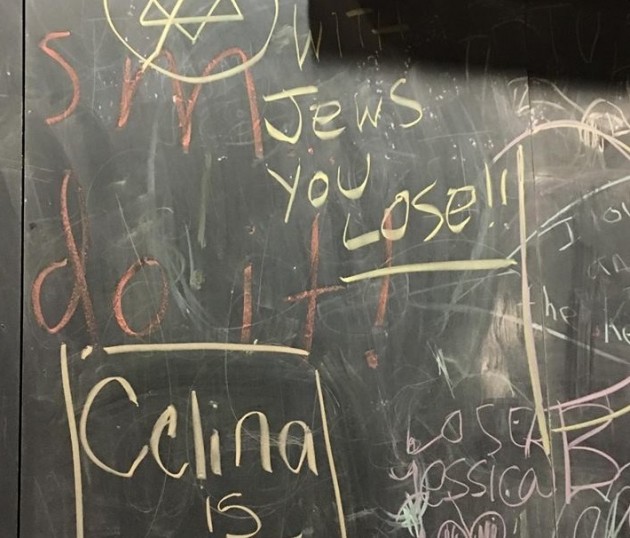 WITH
JEWS
YOU
LOSE!!
sm
do it!
Celina
is
I lo
an
the he
LOSER
Jessica